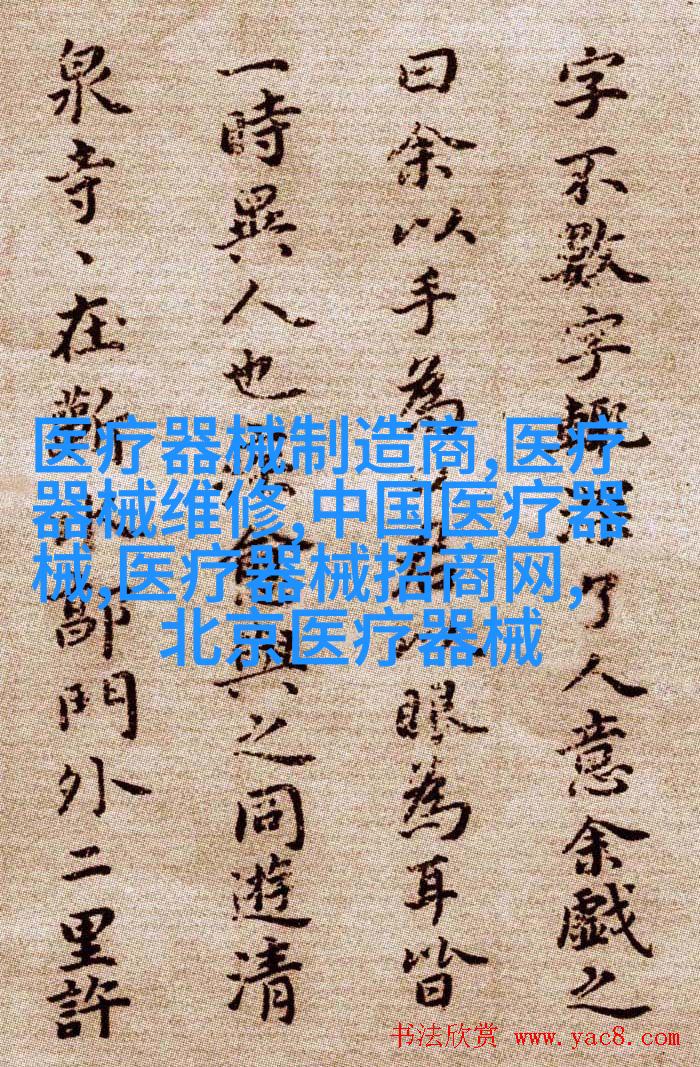 字不數字輒了人意余戲之
曰余以手為眼為耳皆
一時異人也愈與之同遊清
泉寺、在蘄郭門外二里許
医疗器械制造商,医疗
器械维修,中国医疗器
械,医疗器械招商网,
北京医疗器械
书法欣赏 www.yac8.com